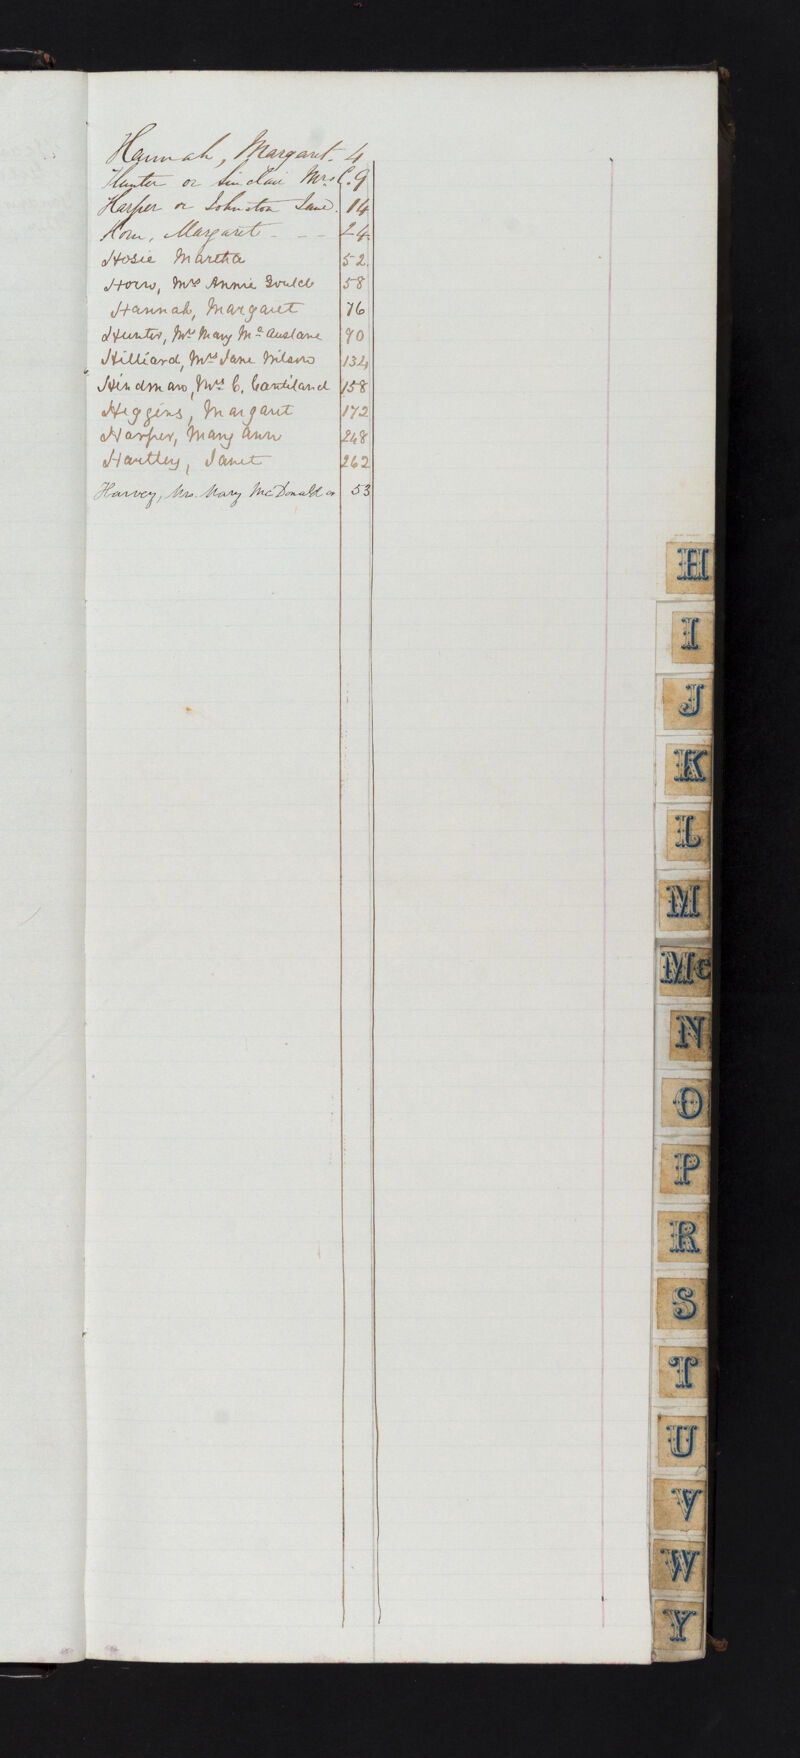 Hannah, Margaret. 4
Hunter or Sinclair Mrs C. 9
Harper or Johnston Jane. 14
Horn, Margaret - - - 24.
Hosie Martha 52.
Horn, Mrs Annie Gould 58
Hannah, Margaret 76
Hunter, Mrs Mary McAuslane 90
Hilliard, Mrs Jane Wilson 134
Hindman, Mrs C. 158
Higgins, Margaret 172
Harper, Mary Ann 248
Hartley, Janet 262
Harvey, Mrs. Mary McDonald or 53
H
I
J
K
L
M
Mc
N
O
P
R
S
T
U
V
W
Y